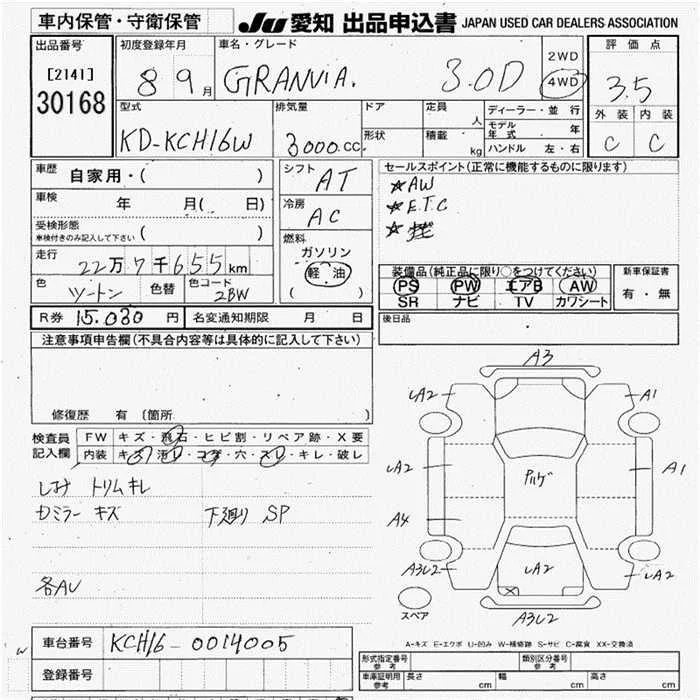 車内保管・守衛保管
JU 愛知 出品申込書 JAPAN USED CAR DEALERS ASSOCIATION
出品番号 初度登録年月 車名・グレード 2WD 評価点
[2141] 8 9月 GRANVIA. 3.0D 4WD 3.5
30168
型式 排気量 ドア 定員 人 ディーラー・並行 外装 内装
KD-KCH16W 3000.cc. 形状 積載 kg モデル年式 年 C C
ハンドル 左・右
車歴 自家用・( ) シフト AT セールスポイント(正常に機能するものに限ります)
車検 年 月( 日) 冷房 AC ☆AW
受検形態 ☆E.T.C
車検付きのみ記入して下さい ( ) 燃料 ☆
走行 22万7千655km ガソリン
軽油
( )
色 ツートン 色替 色コード 2BW
装備品(純正品に限り○をつけてください) 新車保証書
PS PW エアB AW 有・無
SR ナビ TV カワシート
R券 15.030 円 名変通知期限 月 日 後日品
注意事項申告欄(不具合内容等は具体的に記入して下さい)
修復歴 有 〔箇所 〕
検査員記入欄 FW キズ・飛石・ヒビ割・リペア跡・X要
内装 キズ・汚レ・コゲ・穴・スレ・キレ・破レ
しみ トリムキレ
Dミラー キズ 下廻り SP
各AU
A3
LA2 A1
LA2 A1
A4
A3L2 LA2 LA2
スペア A3L2
A-キズ E-エクボ U-凹み W-補修跡 S-サビ C-腐食 XX-交換済
車台番号 KCH16-0014005
登録番号
形式指定番号 参考 類別区分番号 参考
車庫証明用 参考 長さ cm 幅 cm 高さ cm